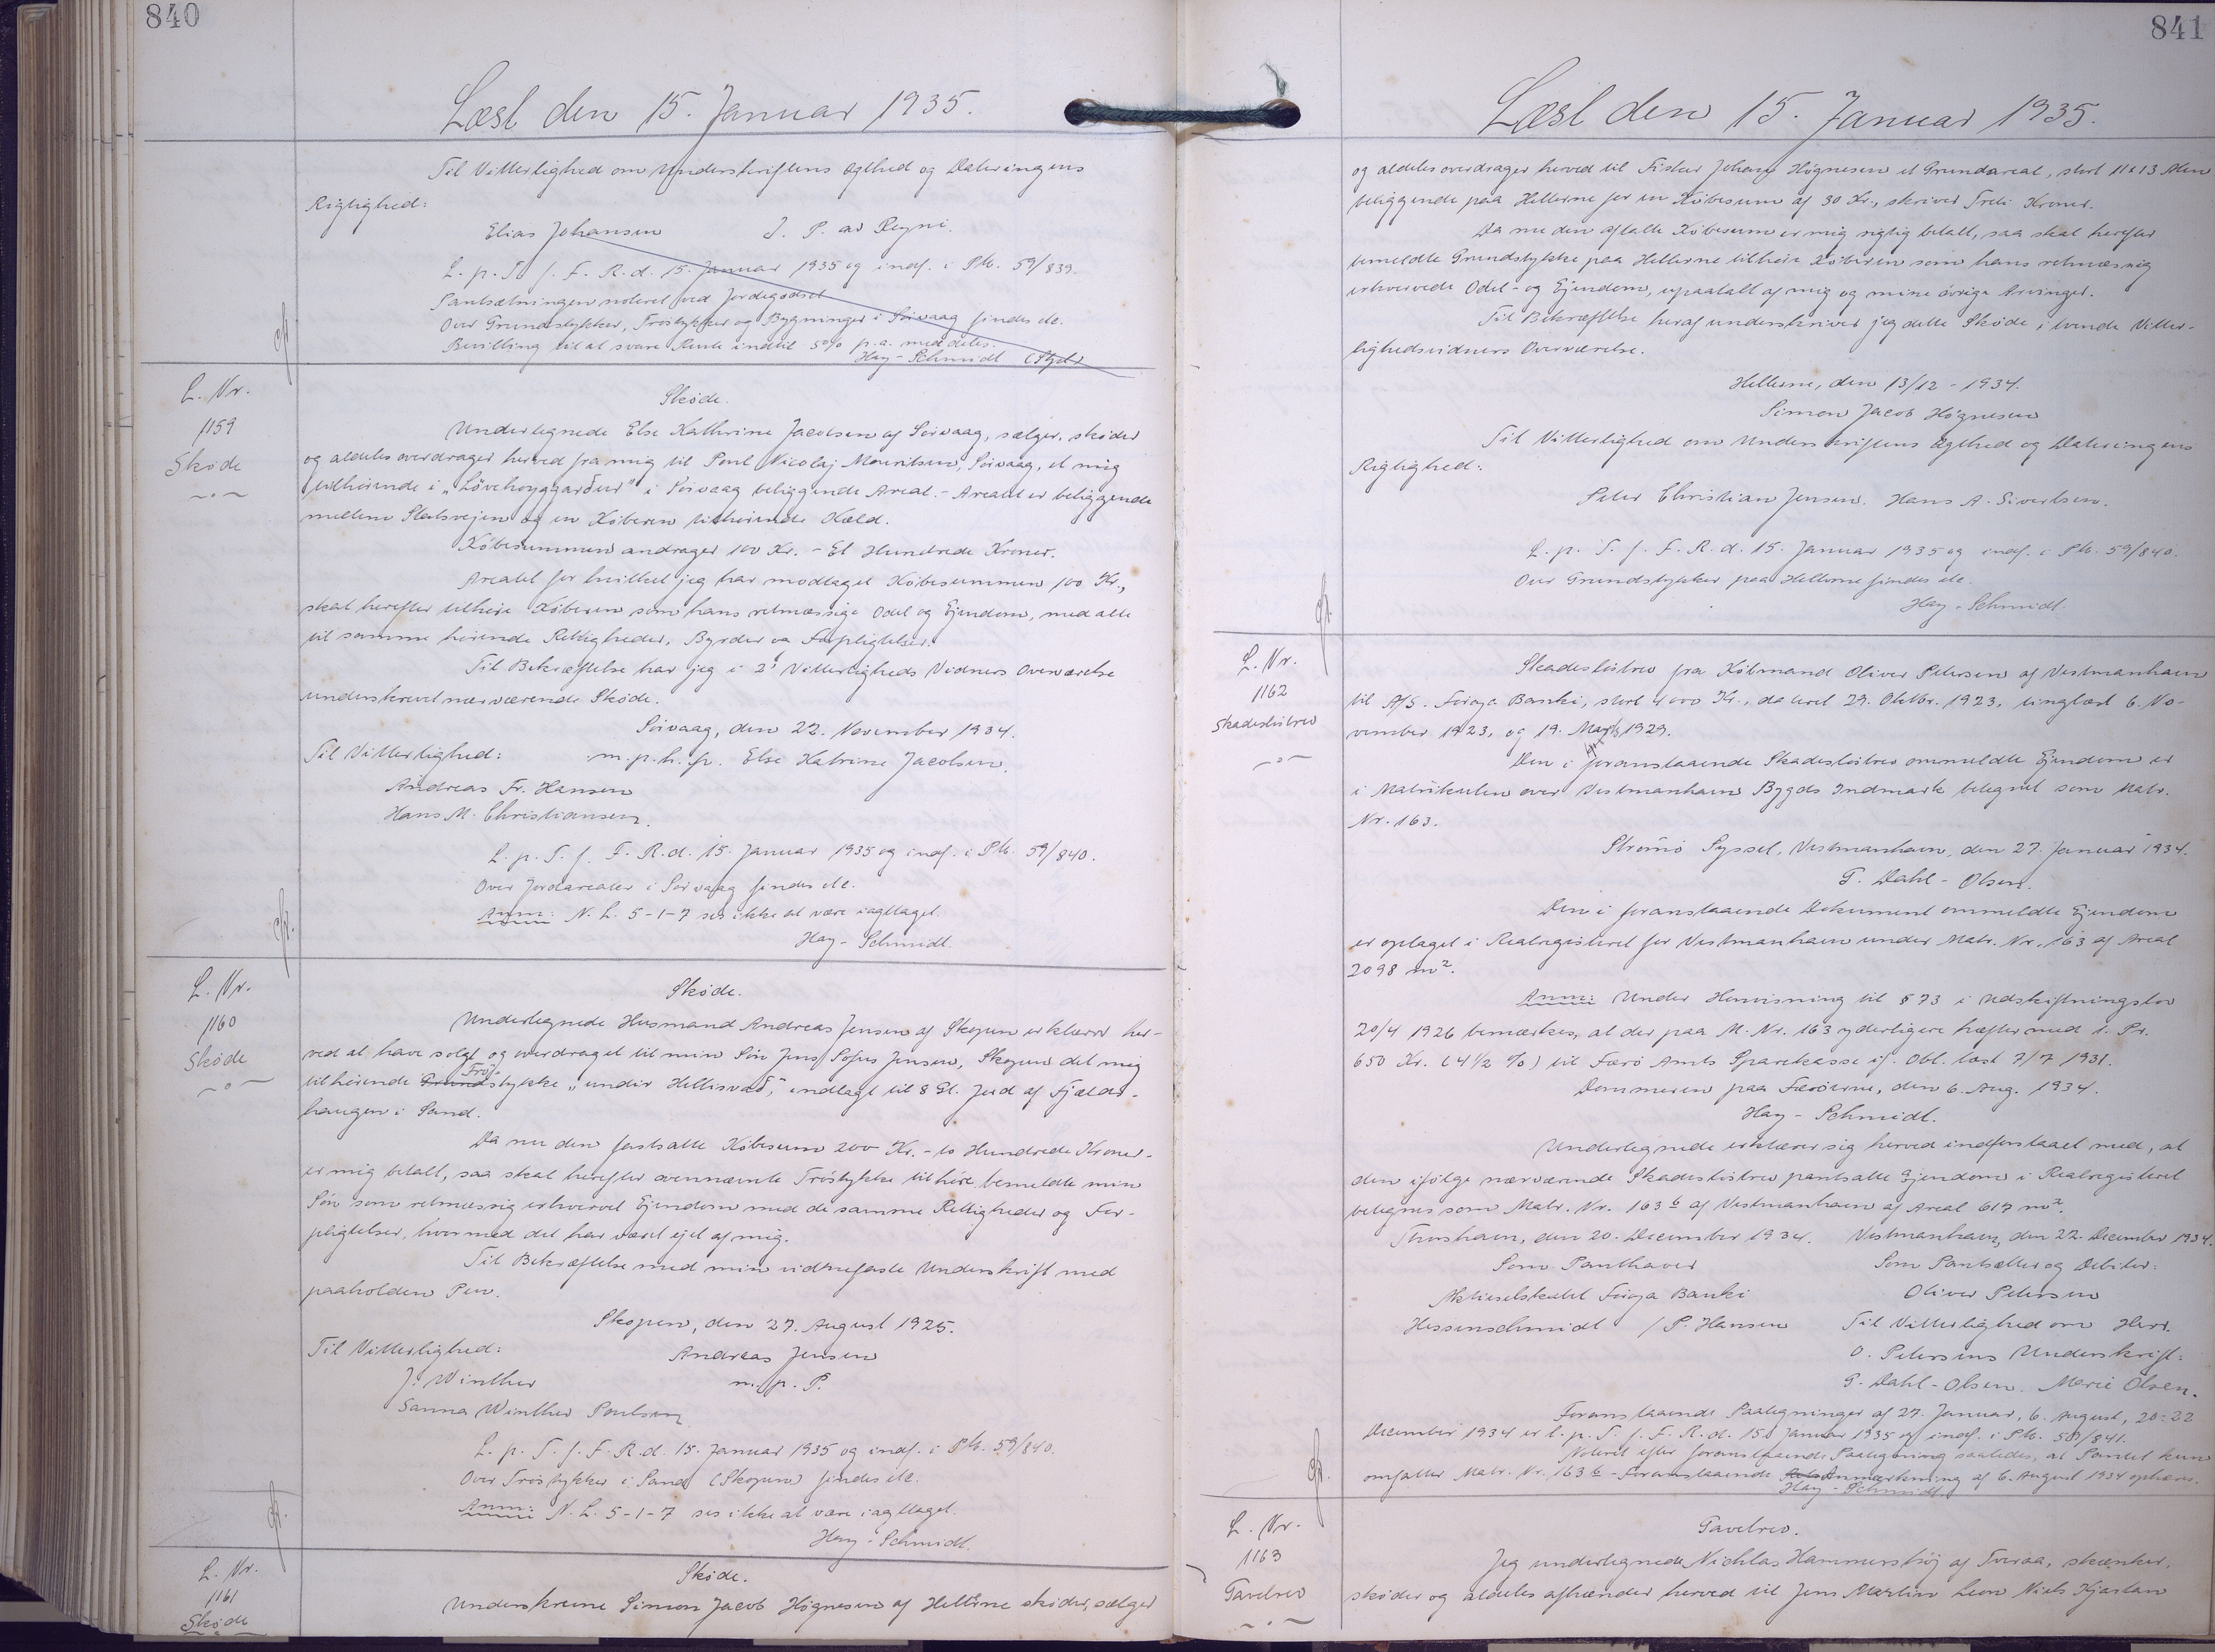 840
Læst den 15. Januar 1935.
Til Vitterlighed om Underskriftens Ægthed og Dateringens
Rigtighed:
Elias Johansen J. P. av Reyni.
L. p. T. f. F. R. d. 15. Januar 1935 og indf. i Pb. 59/839.
Pantsætningen noteret ved Jordegodset
Over Grundstykker, Tróstykker og Bygninger i Sörvaag findes ele.
Bevilling til at svare Rente indtil 5% p.a. meddeles.
Hay-Schmidt
L. Nr.
1159
Skøde
Skøde.
Undertegnede Else Kathrine Jacobsen af Sörvaag, sælger, skøder
og aldeles overdrager herved fra mig til Poul Nicolaj Mouritsen, Sörvaag, et mig
tilhørende i "Lövehoyggarður" i Sörvaag beliggende Areal. - Arealet er beliggende
mellem Statsvejen og en Køberen tilhørende Kæld.
Købesummen andrager 100 Kr. - Et Hundrede Kroner.
Arealet for hvilket jeg har modtaget Købesummen 100 Kr.,
skal herefter tilhøre Køberen som hans retmæssige Odel og Ejendom, med alle
til samme hørende Rettigheder, Byrder og Forpligtelser.
Til Bekræftelse har jeg i 2' Vitterligheds Vidners Overværelse
underskrevet nærværende Skøde.
Sörvaag, den 22. November 1934.
Til Vitterlighed: m.p.h.p. Else Katrine Jacobsen.
Andreas Fr. Hansen
Hans M. Christiansen.
L. p. T. f. F. R. d. 15. Januar 1935 og indf. i Pb. 59/840.
Over Jordarealer i Sörvaag findes ele.
Anm: N. L. 5-1-7 ses ikke at være iagttaget.
Hay-Schmidt.
L. Nr.
1160
Skøde
Skøde.
Undertegnede Husmand Andreas Jensen af Skopun erklærer her-
ved at have solgt og overdraget til min Søn Jens Sofus Jensen, Skopun det mig
Tró-
tilhørende Grundstykke "undir Hellisvað", indlagt til 8 Gl. Jord af Fjælds-
haugen i Sand.
Da nu den fastsatte Købesum 200 Kr. - to Hundrede Kroner -
er mig betalt, saa skal herefter ovennævnte Tróstykke tilhöre bemeldte min
Søn som retmæssig erhvervet Ejendom med de samme Rettigheder og For-
pligtelser, hvormed det har været ejet af mig.
Til Bekræftelse med min vidnefaste Underskrift med
paaholden Pen.
Skopun, den 27. August 1925.
Til Vitterlighed: Andreas Jensen
J. Winther m. p. P.
Sanna Winther Poulsen
L. p. T. f. F. R. d. 15. Januar 1935 og indf. i Pb. 59/840.
Over Tróstykker i Sand (Skopun) findes ele.
Anm: N. L. 5-1-7 ses ikke at være iagttaget.
Hay-Schmidt.
L. Nr.
1161
Skøde
Skøde.
Underskrevne Simon Jacob Høgnesen af Hellerne skøder, sælger
841
Læst den 15. Januar 1935.
og aldeles overdrager herved til Fisker Johan Högnesen et Grundareal, stort 11x13 Alen
beliggende paa Hellerne for en Købesum af 30 Kr., skriver Tredi Kroner.
Da nu den aftalte Købesum er mig rigtig betalt, saa skal herefter
bemeldte Grundstykke paa Hellerne tilhøre Køberen som hans retmæssig
erhvervede Odel- og Ejendom, upaatalt af mig og mine övrige Arvinger.
Til Bekræftelse heraf underskriver jeg dette Skøde i tvende Vitter-
lighedsvidners Overværelse.
Hellerne, den 13/12 - 1934.
Simon Jacob Högnesen
Til Vitterlighed om Underskriftens Ægthed og Dateringens
Rigtighed:
Peter Christian Jensen. Hans A. Sivertsen.
L. p. T. f. F. R. d. 15. Januar 1935 og indf. i Pb. 59/840.
Over Grundstykker paa Hellerne findes ele.
Hay-Schmidt.
L. Nr.
1162
Skadesløsbrev
Skadesløsbrev fra Købmand Oliver Petersen af Vestmanhavn
til A/S. Föroya Banki, stort 4000 Kr., dateret 29. Oktbr. 1923, tinglæst 6. No-
vember 1923, og 19. Marts 1929.
Den i foranstaaende Skadesløsbrev ommeldte Ejendom er
i Matrikulen over Vestmanhavn Bygds Indmark betegnet som Matr.
Nr. 163.
Strömö Syssel, Vestmanhavn, den 27. Januar 1934.
T. Dahl-Olsen.
Den i foranstaaende Dokument ommeldte Ejendom
er optaget i Realregisteret for Vestmanhavn under Matr. Nr. 163 af Areal
2098 m².
Anm: Under Henvisning til § 73 i Udskiftningslov
20/4 1926 bemærkes, at der paa M. Nr. 163 yderligere hæfter med 1. Pr.
650 Kr. (4½ %) til Færö Amts Sparekasse if. Obl. læst 7/7 1931.
Dommeren paa Færöerne, den 6. Aug. 1934.
Hay-Schmidt.
Undertegnede erklærer sig herved indforstaaet med, at
den ifølge nærværende Skadesløsbrev pantsatte Ejendom i Realregisteret
betegnes som Matr. Nr. 163 b af Vestmanhavn af Areal 617 m².
Thorshavn, den 20. December 1934. Vestmanhavn, den 22. December 1934.
Som Panthaver Som Pantsætter og Debitor:
Aktieselskabet Föroya Banki Oliver Petersen
Hessenschmidt / P. Hansen Til Vitterlighed om Herr.
O. Petersens Underskrift:
T. Dahl-Olsen. Marie Olsen.
Foranstaaende Paategninger af 27. Januar, 6. August, 20-22
December 1934 er l. p. T. f. F. R. d. 15. Januar 1935 og indf. i Pb. 59/841.
Noteret efter foranstaaende Paategning saaledes, at Pantet kun
omfatter Matr. Nr. 163 b - Foranstaaende Anmærkning af 6. August 1934 ophæves.
Hay-Schmidt.
L. Nr.
1163
Gavebrev
Gavebrev.
Jeg undertegnede Nichlas Hammershöj af Tveraa, skænker,
skøder og aldeles afhænder herved til Jens Martin Leon Niels Kjartan